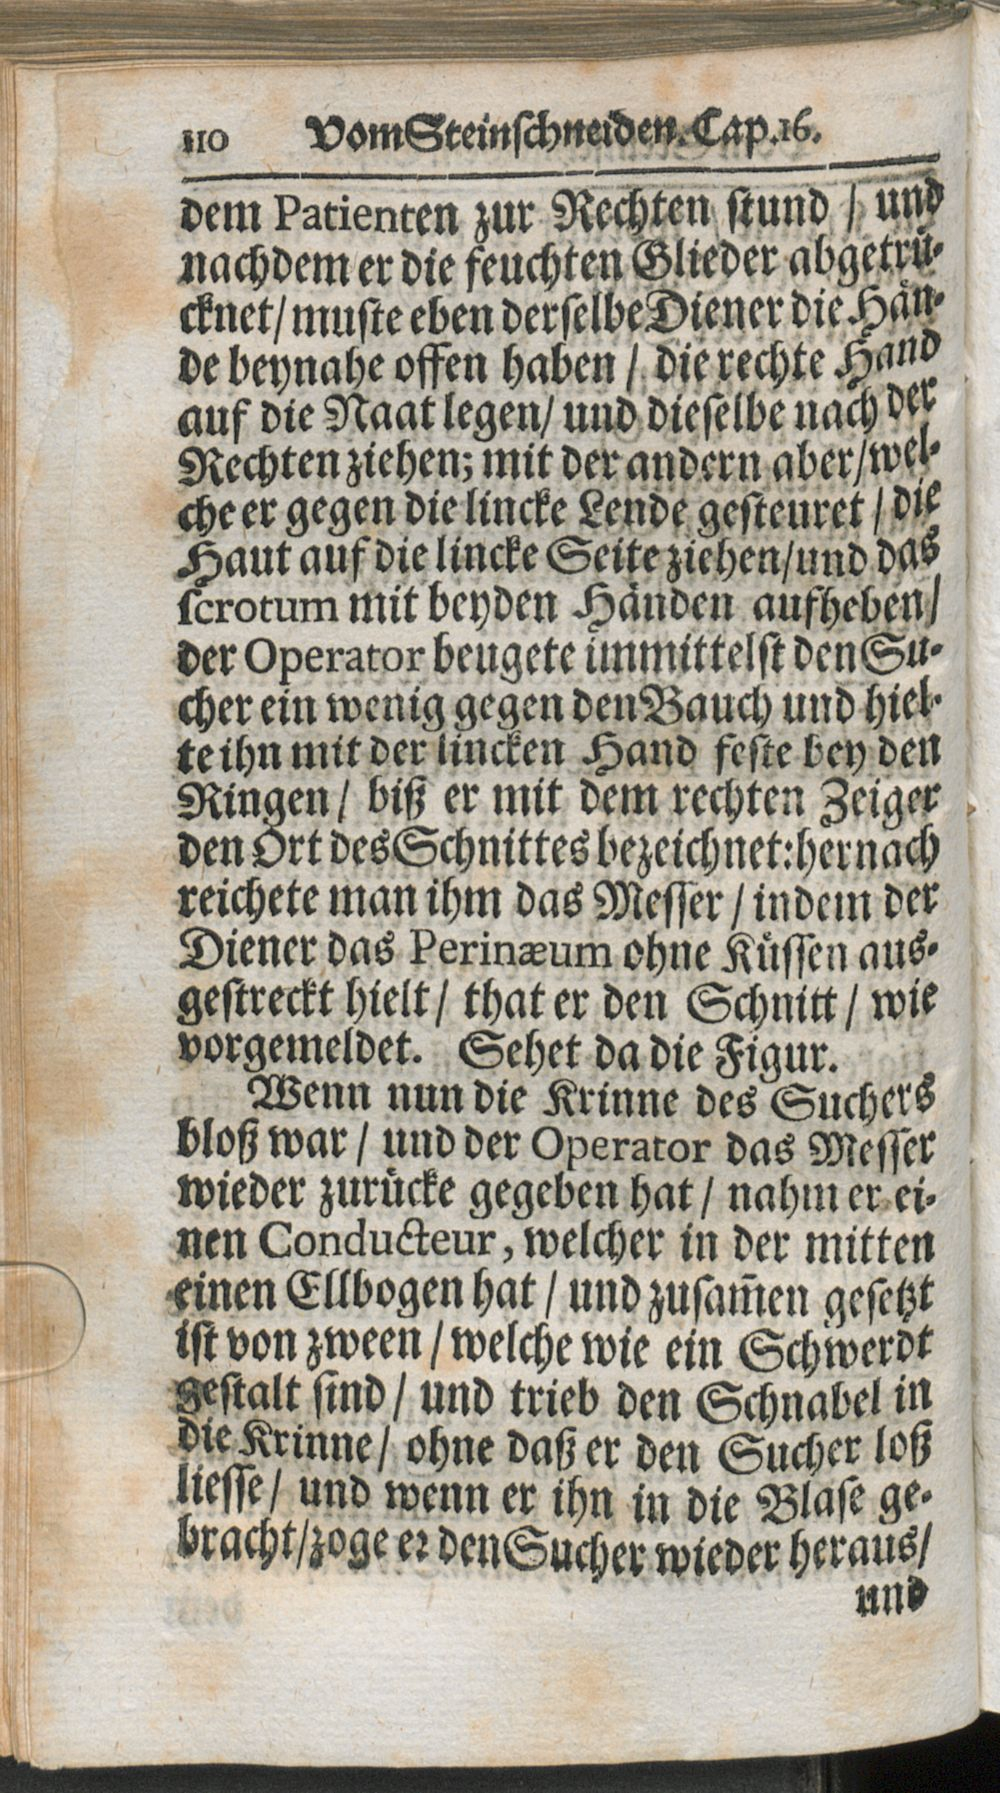 110 Vom Steinschneiden. Cap. 16.
dem Patienten zur Rechten stund / und
nachdem er die feuchten Glieder abgetrü-
cknet / muste eben derselbe Diener die Hän-
de beynahe offen haben / die rechte Hand
auf die Naat legen / und dieselbe nach der
Rechten ziehen; mit der andern aber / wel-
che er gegen die lincke Lende gesteuret / die
Haut auf die lincke Seite ziehen / und das
scrotum mit beyden Händen aufheben /
der Operator beugete immittelst den Su-
cher ein wenig gegen den Bauch und hiel-
te ihn mit der lincken Hand feste bey den
Ringen / biß er mit dem rechten Zeiger
den Ort des Schnittes bezeichnet: hernach
reichete man ihm das Messer / indem der
Diener das Perinæum ohne Küssen aus-
gestreckt hielt / that er den Schnitt / wie
vorgemeldet. Sehet da die Figur.
Wenn nun die Krinne des Suchers
bloß war / und der Operator das Messer
wieder zurücke gegeben hat / nahm er ei-
nen Conducteur, welcher in der mitten
einen Ellbogen hat / und zusam̄en gesetzt
ist von zween / welche wie ein Schwerdt
gestalt sind / und trieb den Schnabel in
die Krinne / ohne daß er den Sucher loß
liesse / und wenn er ihn in die Blase ge-
bracht / zoge er den Sucher wieder heraus /
und